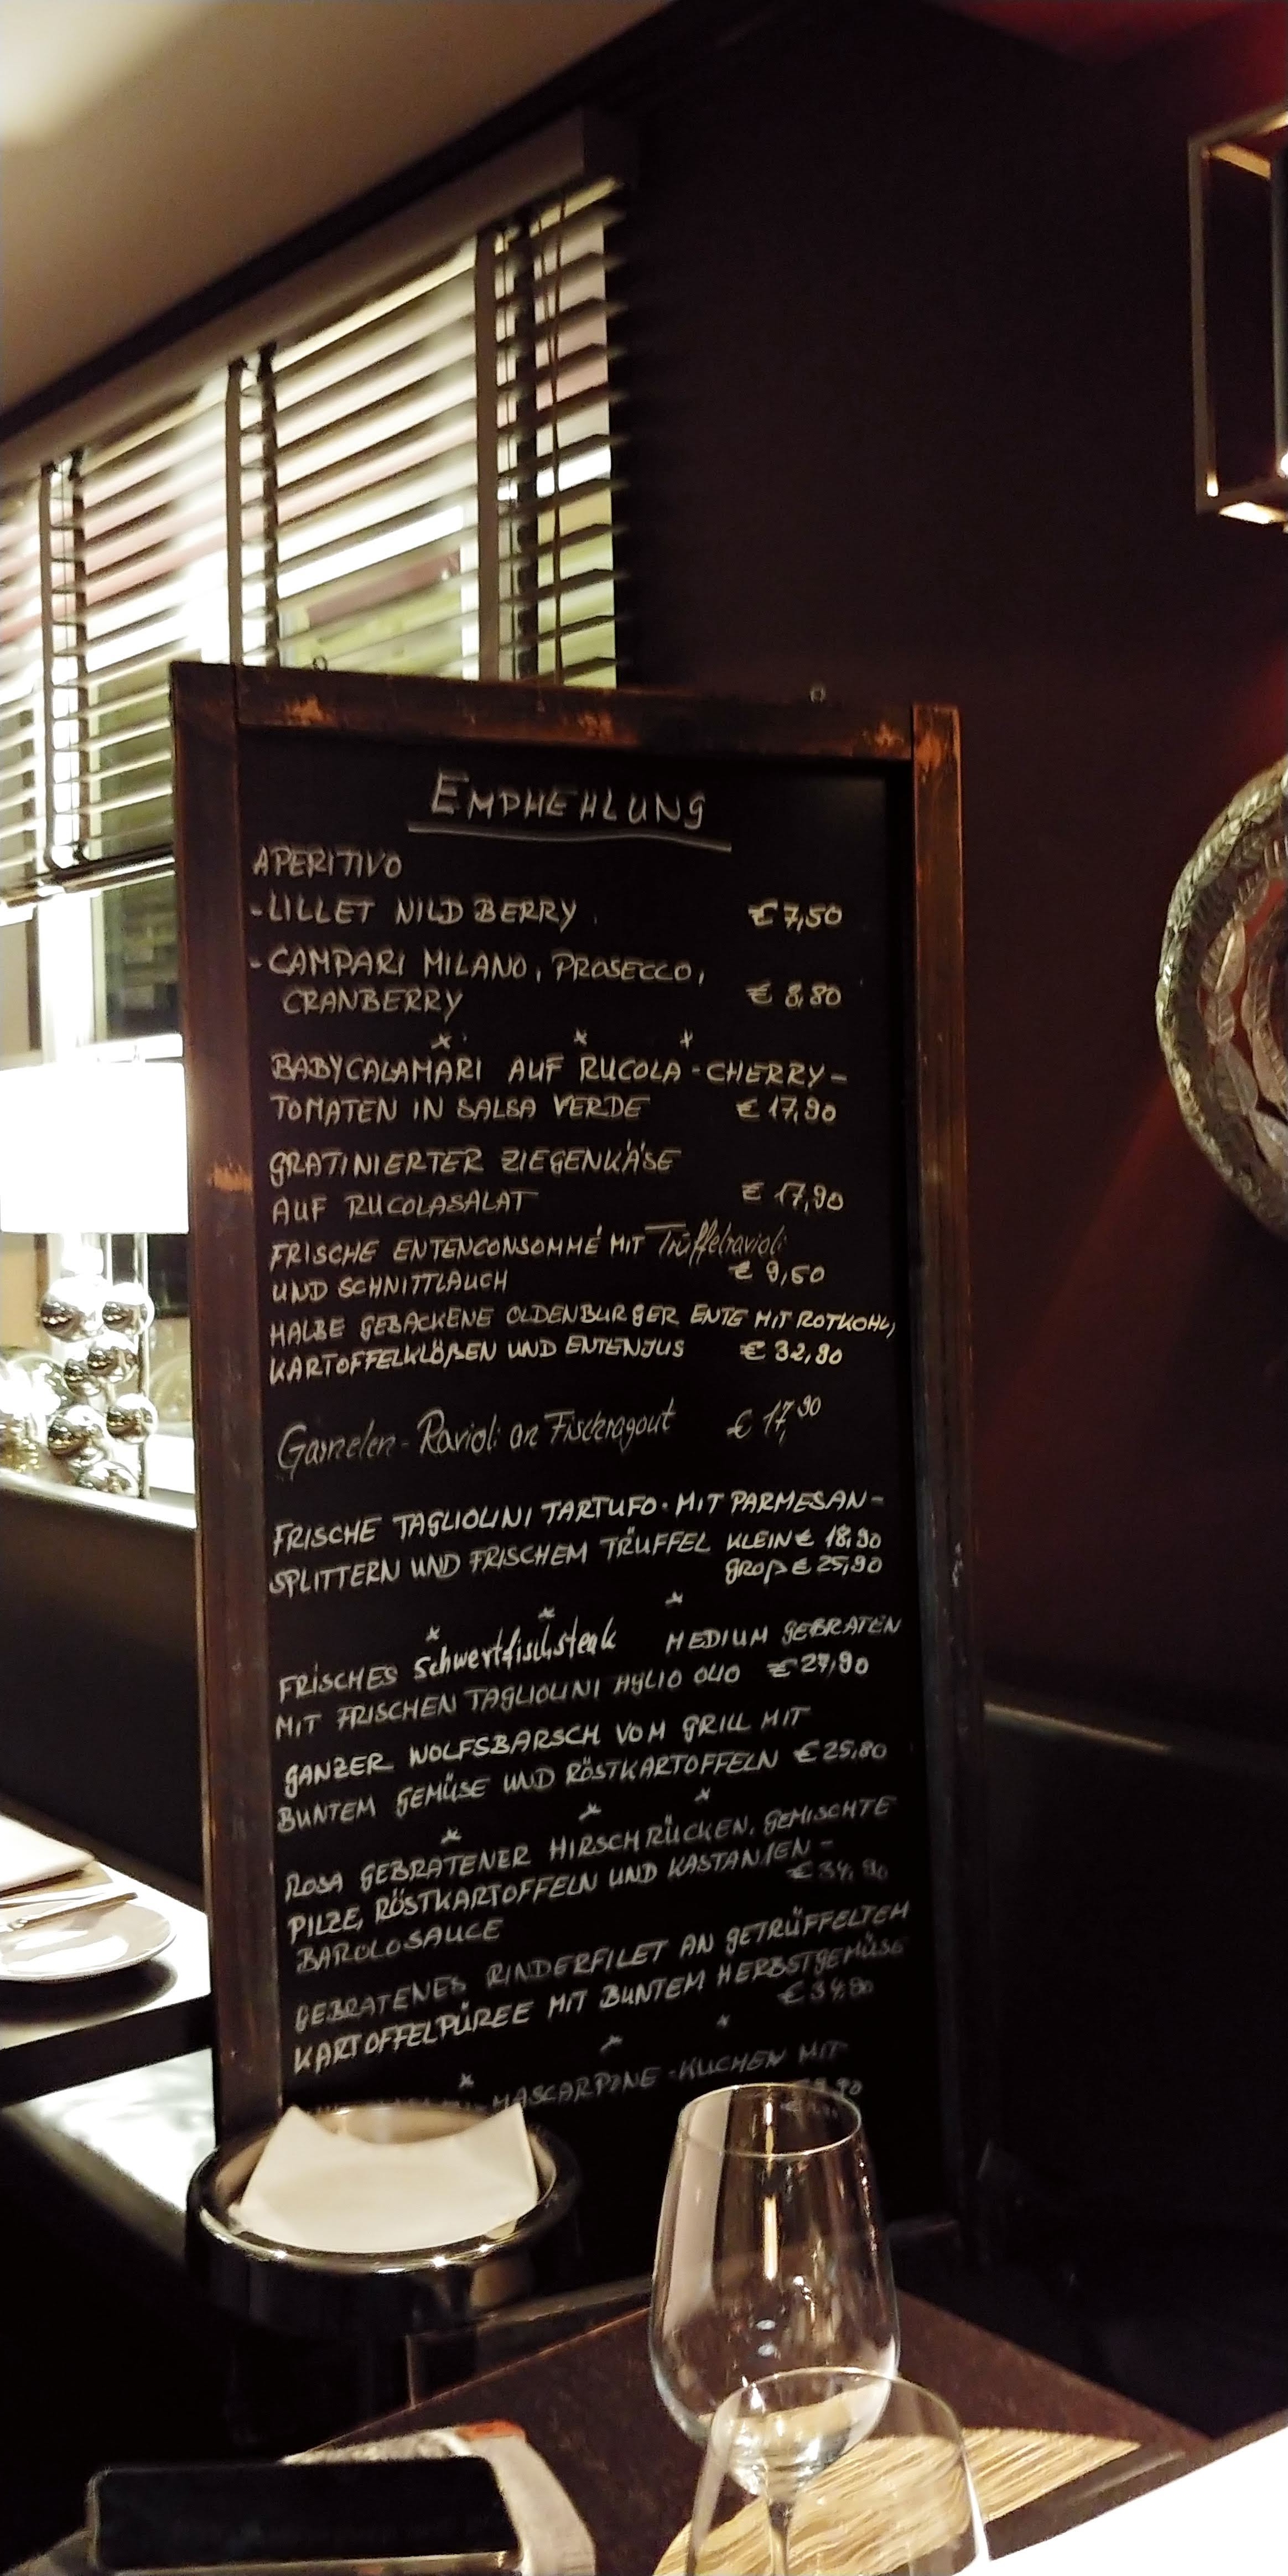 EMPHEHLUNG
APERITIVO
-LILLET WILD BERRY € 7,50
-CAMPARI MILANO, PROSECCO,
CRANBERRY € 8,80
BABYCALAMARI AUF RUCOLA-CHERRY-
TOMATEN IN SALSA VERDE € 17,90
GRATINIERTER ZIEGENKÄSE
AUF RUCOLASALAT € 17,90
FRISCHE ENTENCONSOMMÉ MIT Trüffelravioli
UND SCHNITTLAUCH € 9,50
HALBE GEBACKENE OLDENBURGER ENTE MIT ROTKOHL,
KARTOFFELKLÖßEN UND ENTENJUS € 32,90
Garnelen-Ravioli an Fischragout € 17,90
FRISCHE TAGLIOLINI TARTUFO MIT PARMESAN-
SPLITTERN UND FRISCHEM TRÜFFEL KLEIN € 18,90
GROß € 25,90
FRISCHES Schwertfischsteak MEDIUM GEBRATEN
MIT FRISCHEN TAGLIOLINI AGLIO OLIO
GANZER WOLFSBARSCH VOM GRILL MIT
BUNTEM GEMÜSE UND RÖSTKARTOFFELN € 25,80
ROSA GEBRATENER HIRSCHRÜCKEN, GEMISCHTE
PILZE, RÖSTKARTOFFELN UND KASTANIEN-
BAROLOSAUCE € 34,90
GEBRATENES RINDERFILET AN GETRÜFFELTEM
KARTOFFELPÜREE MIT BUNTEM HERBSTGEMÜSE
€ 34,90
MASCARPONE-KUCHEN MIT